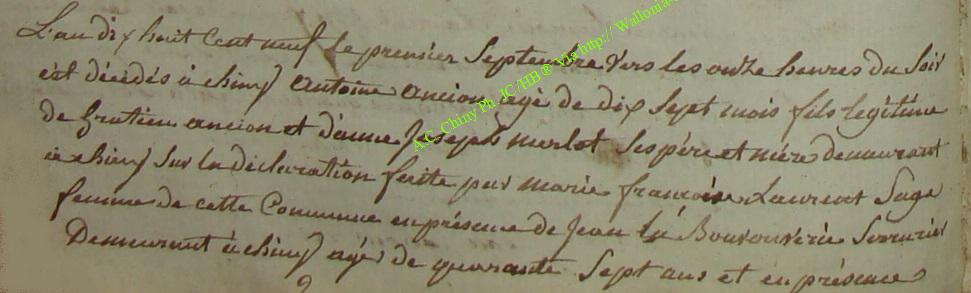 L'an dix huit Cent neuf le premier Septembre Vers les onze heures du Soir
est décédés à chiny antoine ancion agé de dix Sept mois fils legitime
de Gratien ancion et d'anne Joseph merlot Ses père et mère demeurant
à chiny Sur la déclaration faite par marie francoise Laurent Sage
femme de cette Commune en présence de Jean La Bouvouverie Serrurier
Demeurant à chiny agés de quarante Sept ans et en présence
A.C. Chiny Ph. JC/HB ® Via http:// Wallonia-